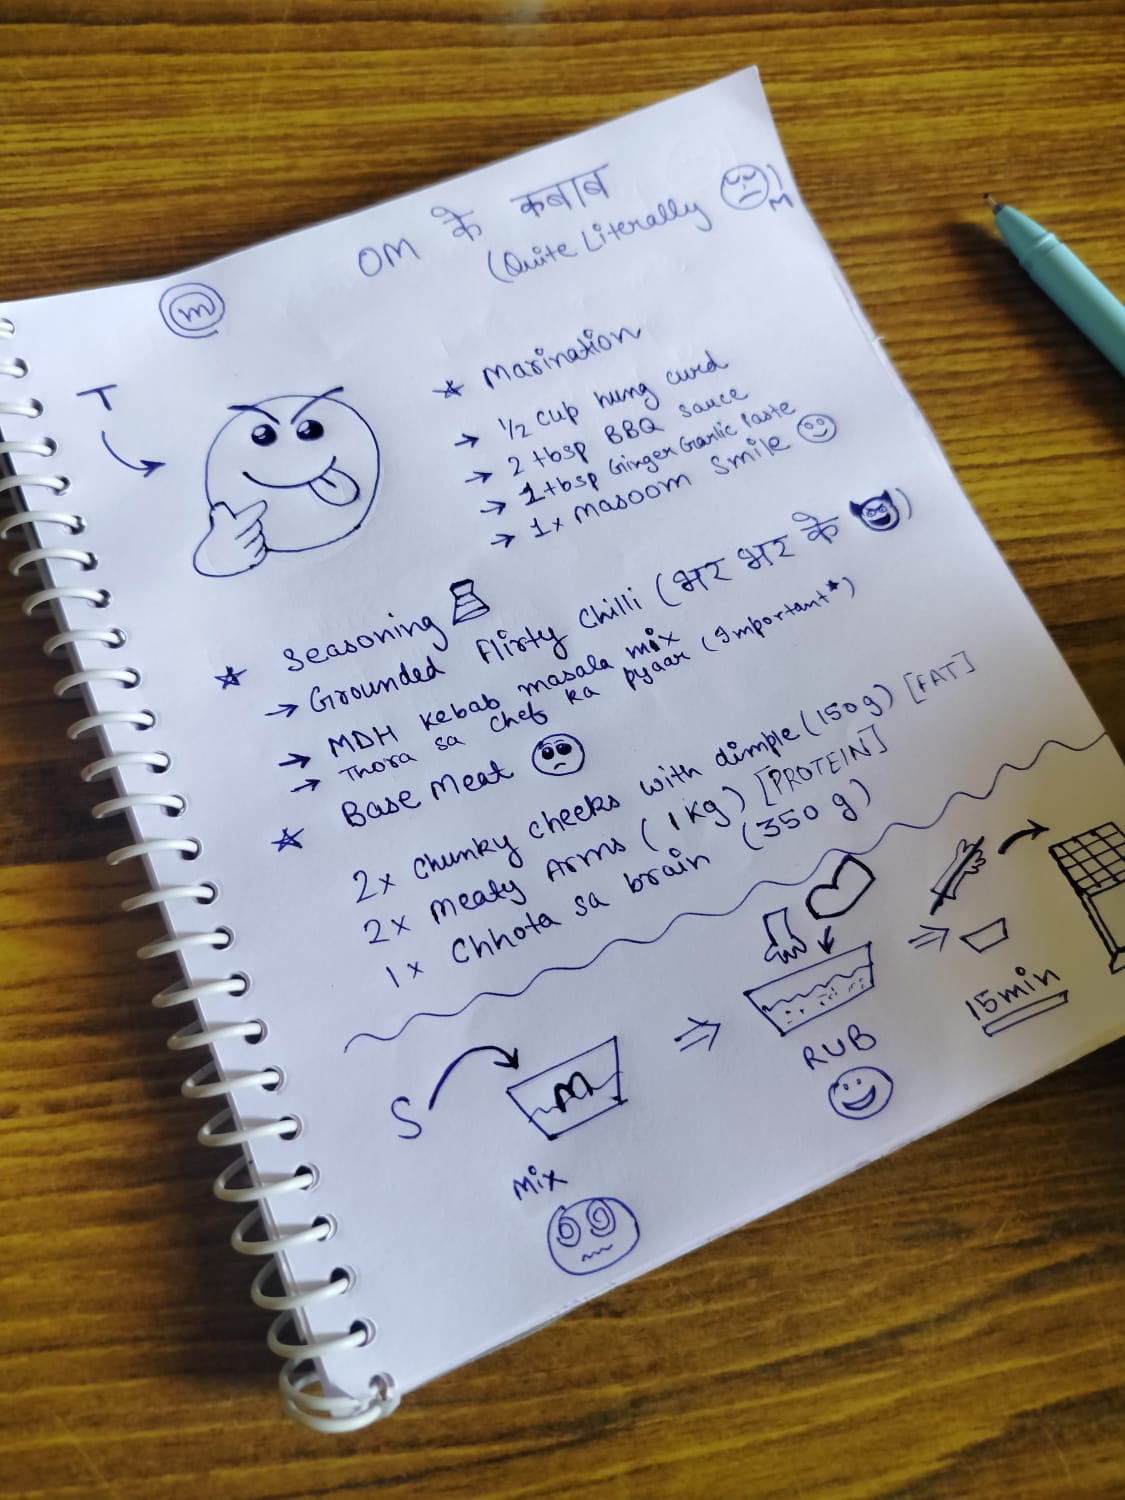 OM के कबाब
(Quite Literally M)
m
T
★ Marination
→ 1/2 cup hung curd
→ 2 tbsp BBQ sauce
→ 1 tbsp Ginger Garlic Paste
→ 1x Masoom Smile
★ Seasoning
→ Grounded Flirty Chilli (भर भर के )
→ MDH kebab masala mix
→ Thora sa chef ka pyaar (Important*)
★ Base Meat
2x Chunky cheeks with dimple (150g) [FAT]
2x Meaty Arms (1kg) [PROTEIN]
1x Chhota sa brain (350 g)
S
M
Mix
RUB
15min